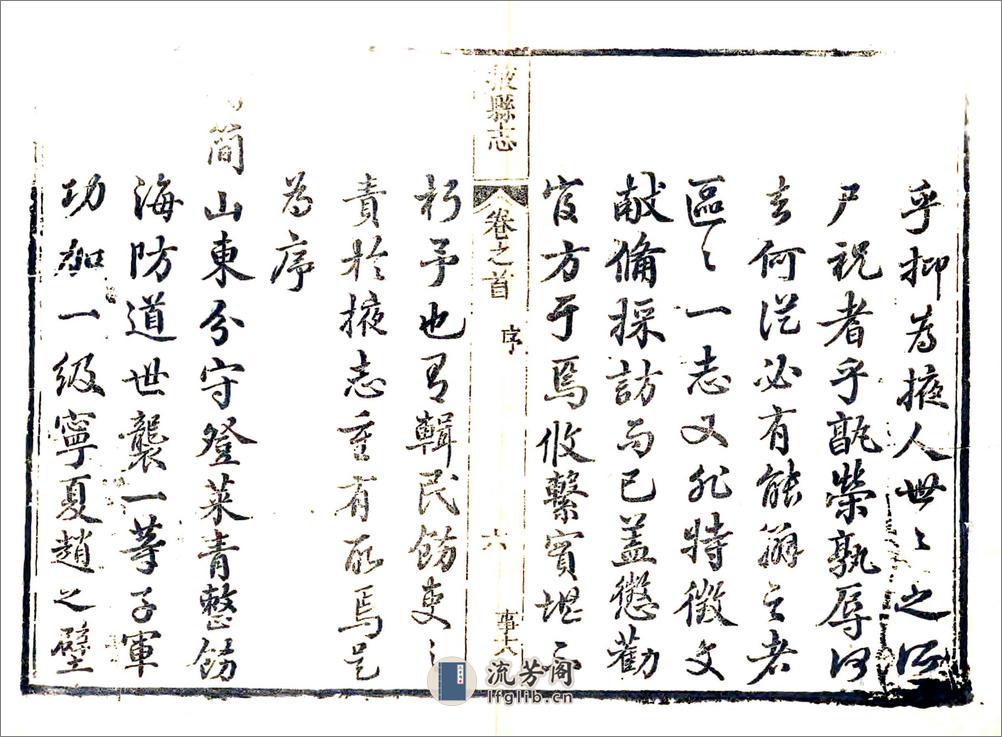 乎抑為掖人世〻之所
尸祝者乎孰榮孰辱何
去何從必有能辨之者
區〻一志又非特徵文
献備採訪而已蓋懲勸
官方于焉攸繫實堪不
掖縣志
卷之首
序
六
朽予也有輯民飭吏之
責於掖志重有取焉是
為序
簡山東分守登萊青整飭
海防道世襲一等子軍
功加一級寧夏趙之璧
流芳阁
lfglib.cn